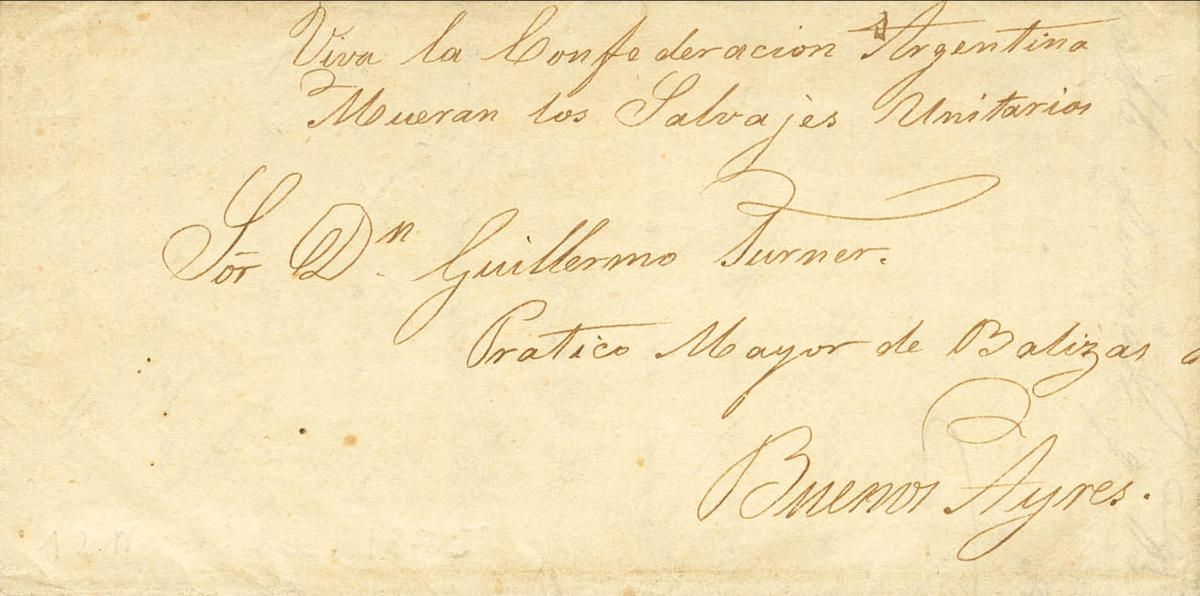 Viva la Confederacion Argentina
Mueran los Salvajes Unitarios
Sor Dn. Guillermo Turner.
Pratico Mayor de Balizas
Buenos Ayres.